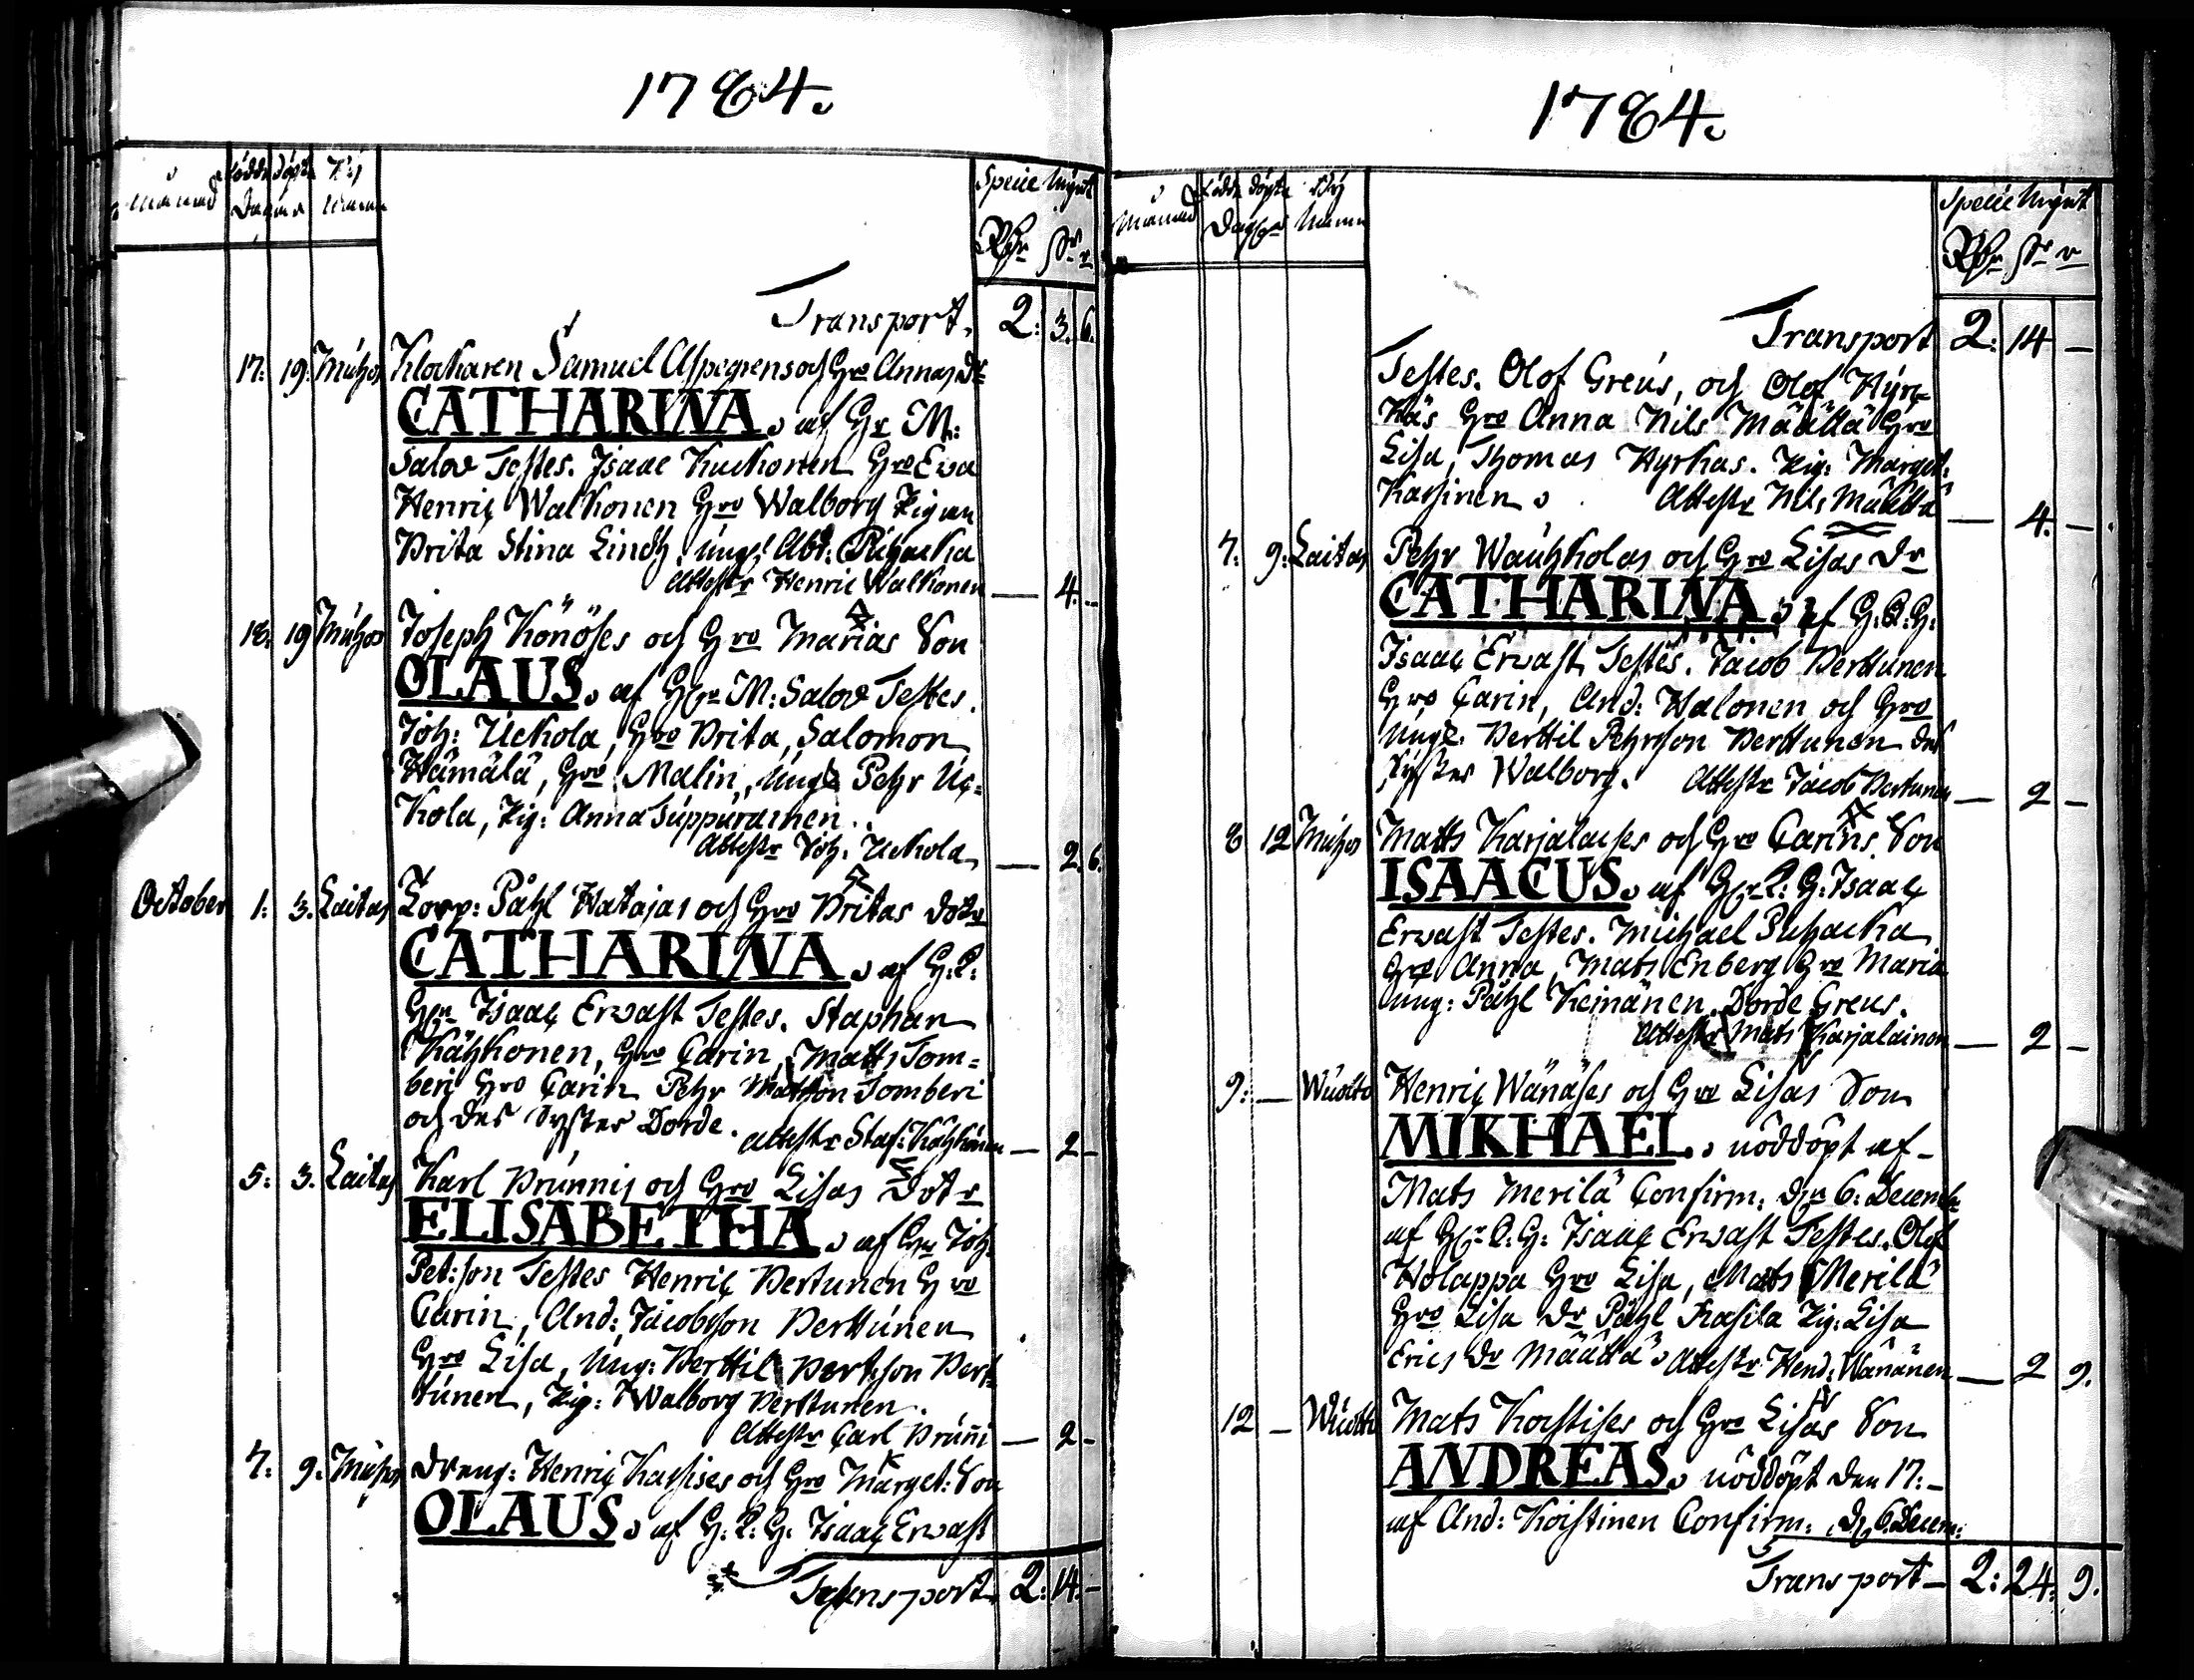 1784.
Månad Födde Döpte By Specie Mynt
Dagar Namn Rdr sk r
Transport. 2: 3. 6.
17: 19: Muhos Klockaren Samuel Aspegrens och Hro Annas Dr
CATHARINA. af Hr M:
Salov Testes. Isaac Kuckonen Hro Eva
Henric Walkonen Hro Walborg Pigan
Brita Stina Lindh, Ungk: Abr: Puhacka
Attestr Henric Walkonen — 4. -
18: 19 Muhos Joseph Könöses och Hro Marias Son
OLAUS. af Hr M: Salov Testes.
Joh: Uckola, Hro Brita, Salomon
Hämälä, Hro Malin, Ungk Pehr Uc-
kola, Pig: Anna Suppurainen.
Attestr Joh: Uckola — 2. 6.
October 1: 3. Laitas Corp: Påhl Hatajas och Hro Britas Dotr
CATHARINA. af H: C:
Hr Isaac Ervast Testes. Staphan
Kähkonen, Hro Carin, Matts Tom-
beri Hro Carin Pehr Matsson Tomberi
och des Syster Dorde. Attestr Staf: Kähkönen — 2 -
5: 3. Laitas Karl Brunnis och Hro Lisas Dotr
ELISABETHA. af Hr Joh:
Pet:son Testes Henric Pertunen Hro
Carin, And: Jacobsson Perttunen
Hro Lisa, Ung: Berttil Pertsson Pert-
tunen, Pig: Walborg Perttunen.
Attestr Carl Brunni — 2 -
7: 9: Muhos Dreng: Henric Kassises och Hro Marget: Son
OLAUS. af H: C: H. Isaac Ervast
Transport 2: 14. -
1784.
Månad Födde Döpte By Specie Mynt
Dagar Namn Rdr sk r
Transport 2: 14 —
Testes. Olof Greus, och Olof Hyr-
käs Hro Anna Nils Määttä Hro
Lisa, Thomas Hyrkas. Pig: Marget:
Kassinen. Attestr Nils Määttä — 4. —
7: 9: Laitas Pehr Wauhkolas och Hro Lisas Dr
CATHARINA. af H: C: H:
Isaac Ervast Testes. Jacob Perttunen
Hro Carin, And: Halonen och Hro
Ungk. Berttil Pehrsson Perttunen des
Syster Walborg. Attestr Jacob Pertunen — 2 —
8 12 Muhos Matts Karjalaises och Hro Carins Son
ISAACUS. af Hr C: H: Isaac
Ervast Testes. Michael Puhacka
Hro Anna, Mats Enberg Hro Maria
Ung: Påhl Keinänen, Dorde Greus.
Attestr Mats Karjalainen — 2 —
9: — Wuotto Henric Wänäses och Hro Lisas Son
MIKHAEL. nöddöpt af
Mats Merilä Confirm: dn 6: Decemb
af Hr C: H: Isaac Ervast Testes. Olof
Holappa Hro Lisa, Mats Merilä
Hro Lisa Dr Påhl Kasila Pig: Lisa
Erics Dr Määttä. Attestr Hend: Wänänen — 2 9.
12 — Wuotto Mats Koistises och Hro Lisas Son
ANDREAS. nöddöpt den 17:
af And: Koistinen Confirm: d 6. Decem:
Transport — 2: 24: 9.